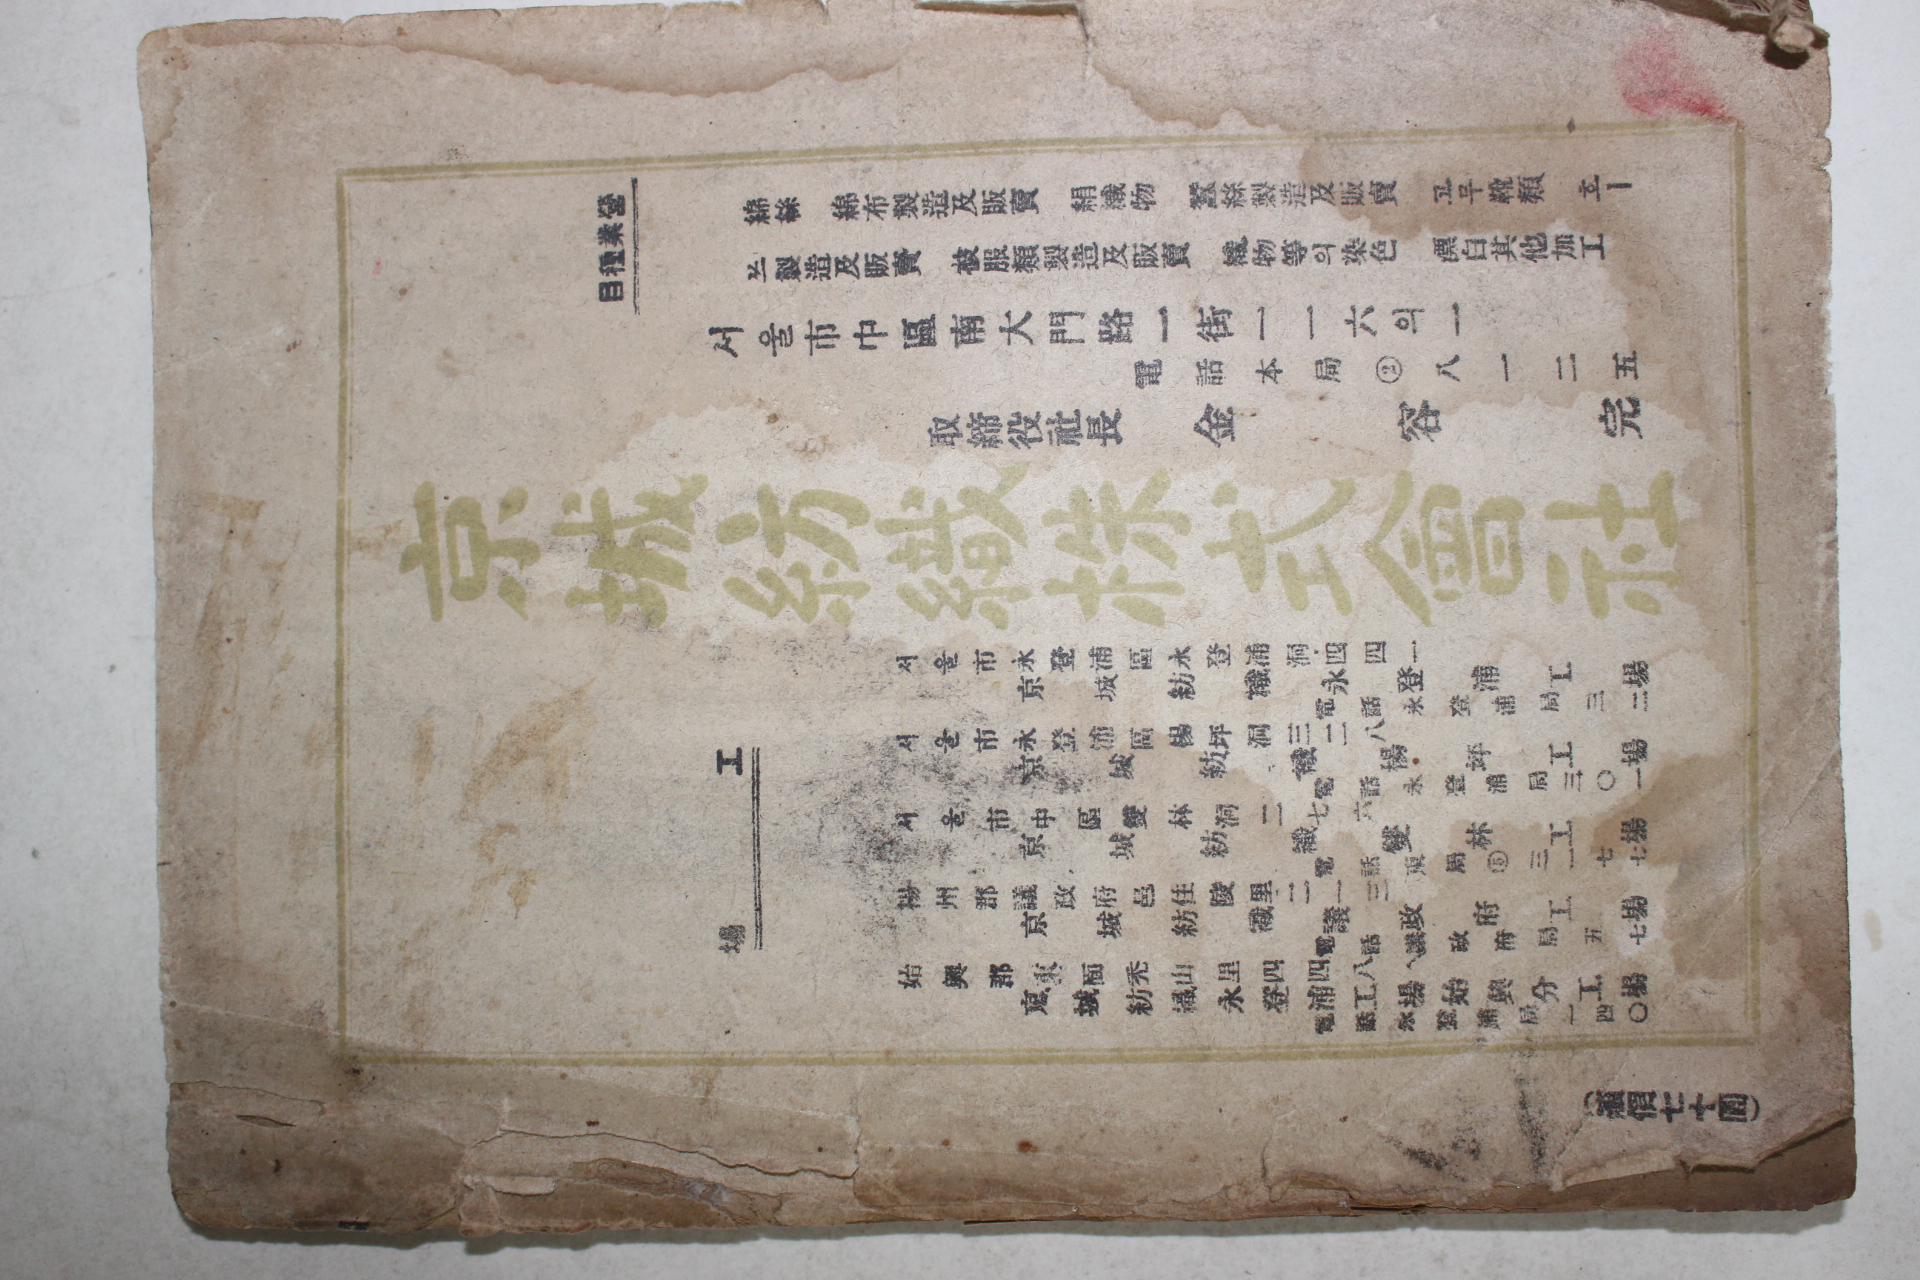 營業種目
綿絲 綿布製造及販賣 絹織物 蠶絲製造及販賣 고무靴類 호ー
쓰製造及販賣 被服類製造及販賣 織物等의染色 漂白其他加工
서울市中區南大門路一街一一六의一
電話本局②八一二五
取締役社長 金容完
京城紡織株式會社
工場
서울市永登浦區永登浦洞四四一
京城紡織永登浦工場
電話永登浦局三二
서울市永登浦區楊坪洞三二八
京城紡織楊坪工場
電話永登浦局三〇一
서울市中區雙林洞二七六
京城紡織雙林工場
電話東局⑤三一七七
楊州郡議政府邑佳陵里二一三
京城紡織議政府工場
電話議政府局五七
始興郡東面禿山里四四八
京城紡織永登浦工場始興分工場
電話永登浦局一四〇
價七十圓)